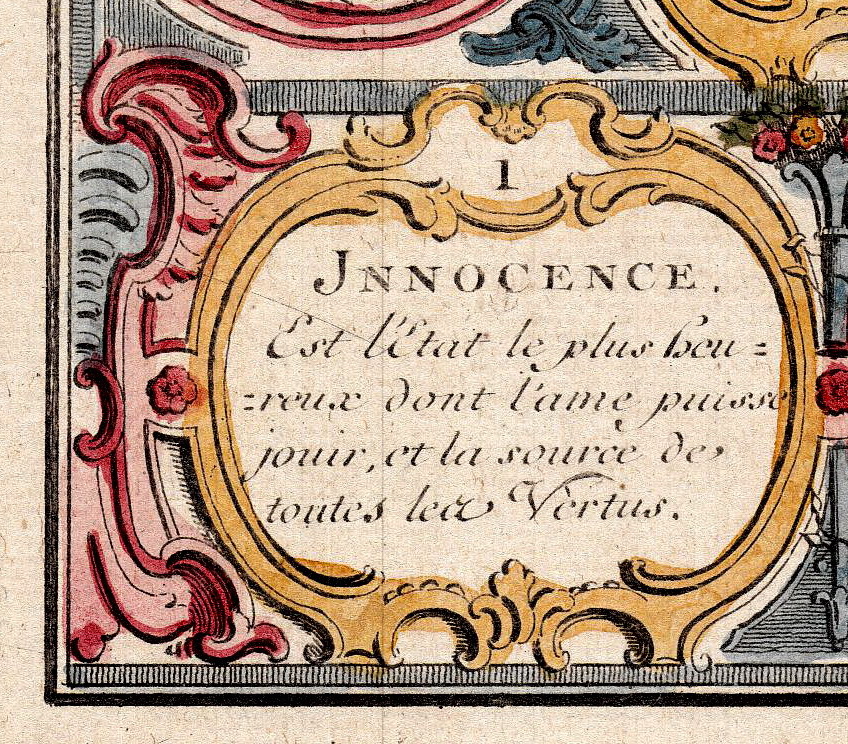 1
JNNOCENCE.
Est l'Etat le plus heu=
=reux dont l'ame puisse
jouir, et la source de
toutes les Vertus.